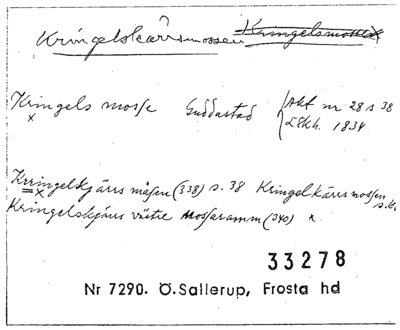 Kringelskärrsmossen Kringelsmosse
Kringels mosse Guddastad Akt nr 28 s 38
LSkh. 1834
Kringelkjärrs måsen (338) s. 38 Kringelkärrsmossen
Kringelskjärrs västre mossaramm (340)
33278
Nr 7290. Ö. Sallerup, Frosta hd